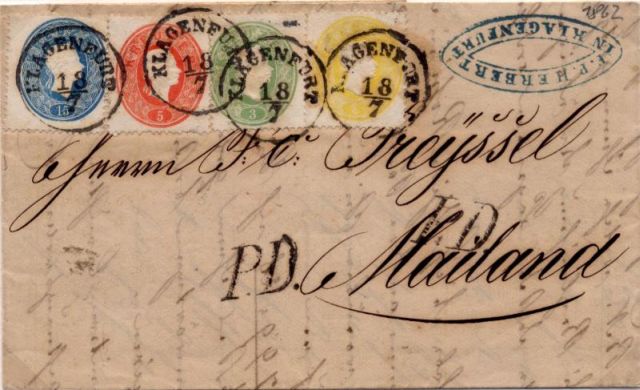 1862
KLAGENFURT 18/7
KLAGENFURT 18/7
KLAGENFURT 18/7
KLAGENFURT 18/7
15
5
3
HERBERT
IN KLAGENFURT
Herrn F. C. Freyssel
P.D.
P.D.
Mailand